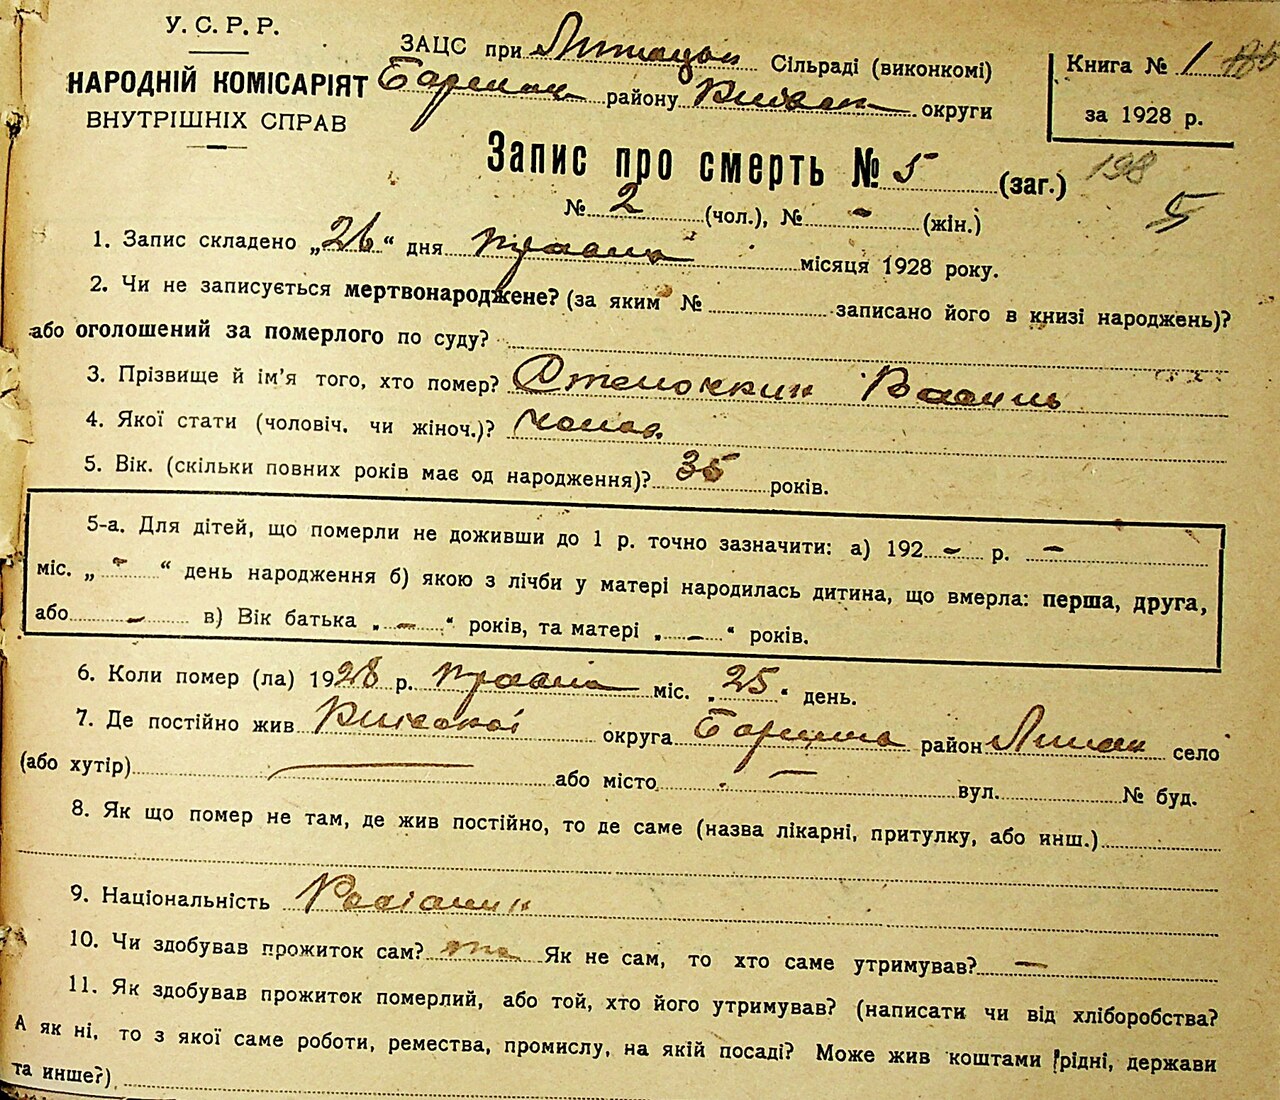 У. С. Р. Р.
НАРОДНІЙ КОМІСАРІЯТ
ВНУТРІШНІХ СПРАВ
ЗАЦС при Сільраді (виконкомі)
району округи
Книга № 1
за 1928 р.
Запис про смерть № 5 (заг.)
198
5
№ 2 (чол.), № - (жін.)
1. Запис складено „26“ дня травня місяця 1928 року.
2. Чи не записується мертвонароджене? (за яким № записано його в книзі народжень)?
або оголошений за померлого по суду?
3. Прізвище й ім'я того, хто помер? Василь
4. Якої стати (чоловіч. чи жіноч.)? чолов.
5. Вік. (скільки повних років має од народження)? 35 років.
5-а. Для дітей, що померли не доживши до 1 р. точно зазначити: а) 192 - р. -
міс. „ - “ день народження б) якою з лічби у матері народилась дитина, що вмерла: перша, друга,
або - в) Вік батька „ - “ років, та матері „ - “ років.
6. Коли помер (ла) 1928 р. травня міс. „25“ день.
7. Де постійно жив округа район село
(або хутір) — або місто - вул. № буд.
8. Як що помер не там, де жив постійно, то де саме (назва лікарні, притулку, або инш.)
9. Національність Росіянин
10. Чи здобував прожиток сам? так Як не сам, то хто саме утримував? -
11. Як здобував прожиток померлий, або той, хто його утримував? (написати чи від хліборобства?
А як ні, то з якої саме роботи, ремества, промислу, на якій посаді? Може жив коштами рідні, держави
та инше?)